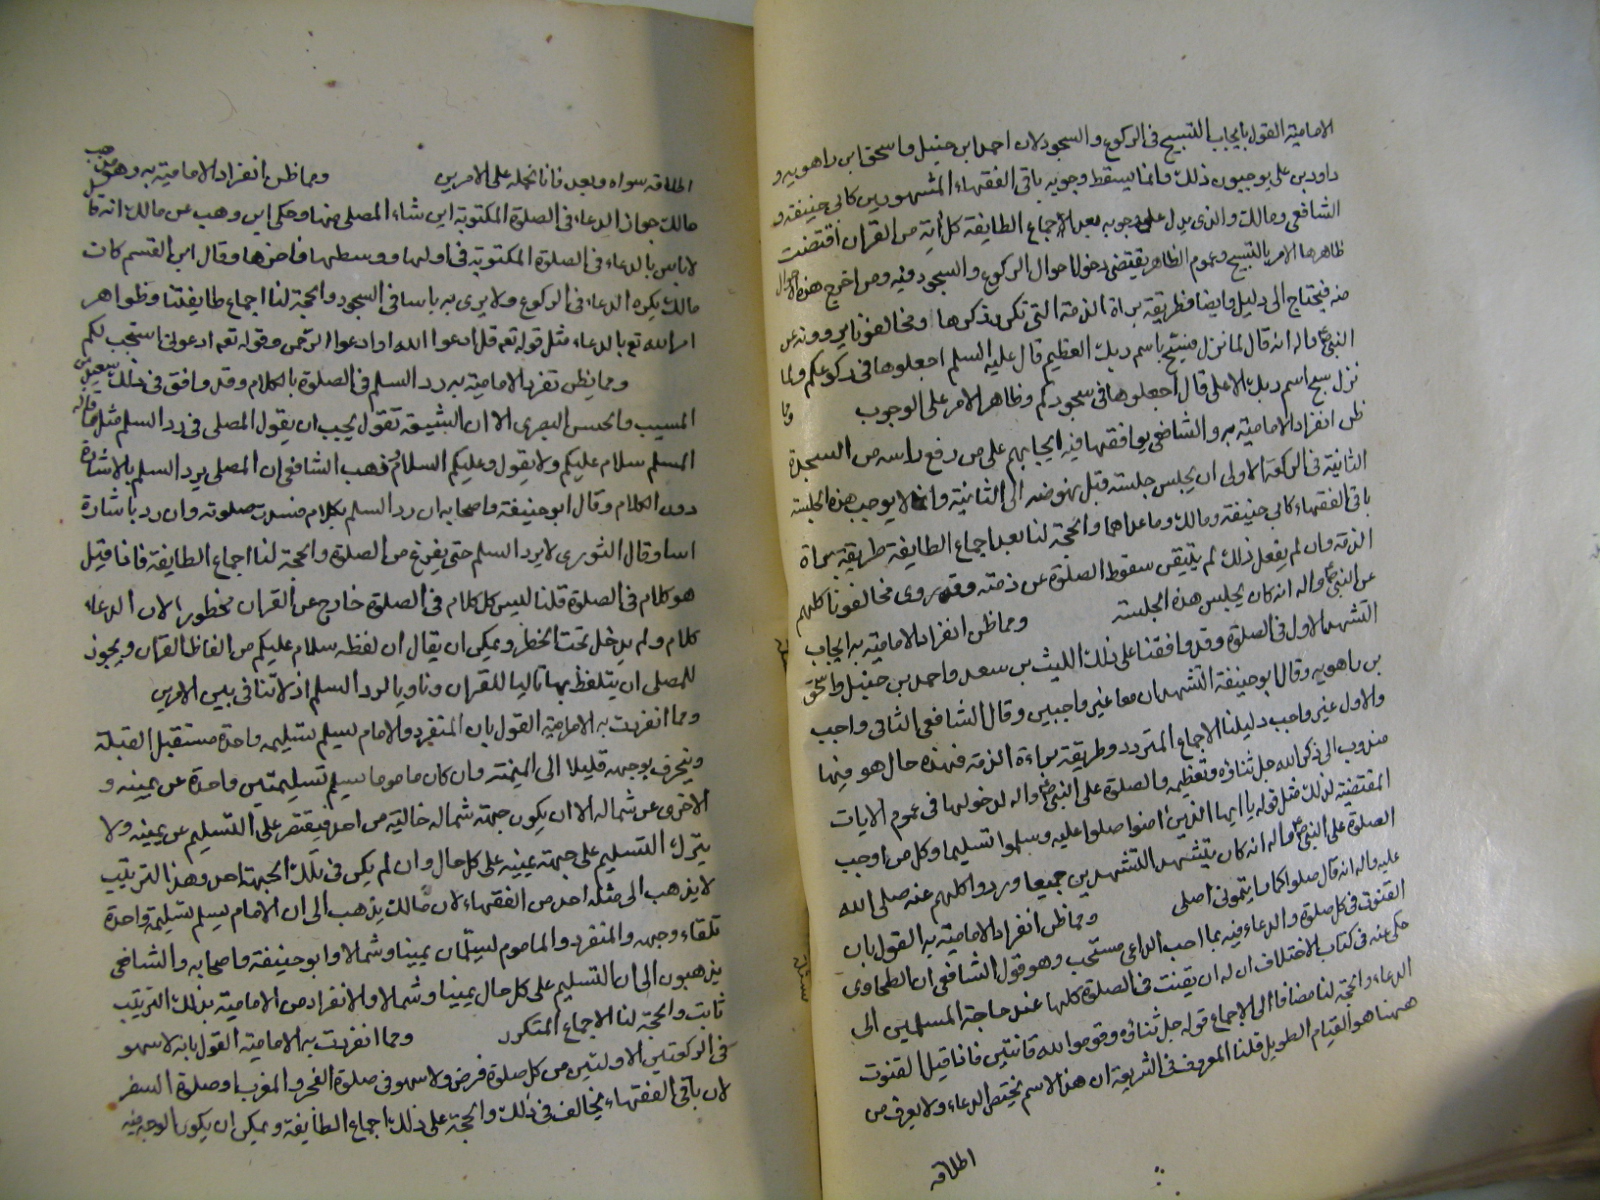 الامامية القول بايجاب التسبيح فى الركوع والسجود لان احمد ابن حنبل واسحق ابن راهويه و
داود بن على يوجبون ذلك وانما يسقط وجوبه باقى الفقهاء المشهورين كابى حنيفة و
الشافعى ومالك والذى يدل على وجوبه بعد الاجماع الطايفة كل اية من القران اقتضت
ظاهرها الامر بالتسبيح وعموم الظاهر يقتضى دخول احوال الركوع والسجود فيه ومن اخرج هذه الاحوال
منه فيحتاج الى دليل وايضا فطريقة براة الذمة التى تكرر ذكرها ومخالفونا يروونه عن
النبى ص واله انه قال لما نزل فسبح باسم ربك العظيم قال عليه السلم اجعلوها فى ركوعكم ولما
نزل سبح اسم ربك الاعلى قال اجعلوها فى سجودكم وظاهر الامر على الوجوب ومما
ظن انفراد الامامية به والشافعى يوافقها فيه ايجابهم على من رفع راسه من السجدة
الثانية فى الركعة الاولى ان يجلس جلسة قبل نهوضه الى الثانية وانما لا يوجب هذه الجلسة
باقى الفقهاء كابى حنيفة ومالك وما عداهما والحجة لنا بعد اجماع الطايفة طريقة براة
الذمة وان لم يفعل ذلك لم يتيقن سقوط الصلوة عن ذمته وقد يروى مخالفونا كلهم
عن النبى ص واله انه كان يجلس هذه الجلسة ومما ظن انفراد الامامية به ايجاب
التشهد الاول فى الصلوة وقد وافقنا على ذلك الليث بن سعد واحمد بن حنبل واسحق
بن راهويه وقال ابو حنيفة التشهدان معا غير واجبين وقال الشافعى الثانى واجب
والاول غير واجب دليلنا الاجماع المتردد وطريقة براءة الذمة فهذه حال هو فيها
مندوب الى ذكر الله جل ثناؤه وتعظيمه والصلوة على النبى ص واله لدخولها فى عموم الايات
المقتضية لذلك مثل قوله يا ايها الذين امنوا صلوا عليه وسلموا تسليما وكل من اوجب
الصلوة على النبى ص واله انه كان يتشهد التشهدين جميعا ورووا كلهم عنه صلى الله
عليه واله انه قال صلوا كما رايتمونى اصلى ومما ظن انفراد الامامية به القول بان
القنوت فى كل صلوة والدعاء فيه بما احب الداعى مستحب وهو قول الشافعى ان الطحاوى
حكى عنه فى كتاب الاختلاف ان له ان يقنت فى الصلوة كلها عند حاجة المسلمين الى
الدعاء والحجة لنا مضافا الى الاجماع قوله جل ثناؤه وقوموا لله قانتين فاذا قيل القنوت
ههنا هو القيام الطويل قلنا المعروف فى الشريعة ان هذا الاسم يختص الدعاء ولا يعرف من
اطلاقه
اطلاقه سواه وبعد فانا نحمله على الامرين ومما ظن انفراد الامامية به وهو مذهب
مالك جواز الدعاء فى الصلوة المكتوبة اين شاء المصلى منها وحكى ابن وهب عن مالك انه قال
لا باس بالدعاء فى الصلوة المكتوبة فى اولها ووسطها واخرها وقال ابن القسم كان
مالك يكره الدعاء فى الركوع ولا يرى به باسا فى السجود والحجة لنا اجماع طايفتنا وظواهر
امر الله تع بالدعاء مثل قوله تعه قل ادعوا الله او ادعوا الرحمن وقوله تعه ادعونى استجب لكم
ومما يظن تفرد الامامية به رد السلم فى الصلوة بالكلام وقد وافق فى ذلك سعيد بن
المسيب والحسن البصرى الا ان الشيعة تقول يجب ان يقول المصلى فى رد السلم مثل ما قاله
المسلم سلام عليكم ولا يقول وعليكم السلام وذهب الشافعى ان المصلى يرد السلم بالاشارة
دون الكلام وقال ابو حنيفة واصحابه ان رد السلم بكلام فسدت صلوته وان رد باشارة
اسا وقال الثورى لا يرد السلم حتى يفرغ من الصلوة والحجة لنا اجماع الطايفة فاذا قيل
هو كلام فى الصلوة قلنا ليس كل كلام فى الصلوة خارج عن القران محظورا لان الدعاء
كلام ولم يدخل تحت الحظر ويمكن ان يقال ان لفظه سلام عليكم من الفاظ القران ويجوز
للمصلى ان يتلفظ بها تاليا للقران وناويا لرد السلم اذ لا تنافى بين الامرين
ومما انفردت به الامامية القول بان المنفرد والامام يسلم تسليمه واحدة مستقبل القبلة
وينحرف بوجهه قليلا الى اليمنة وان كان ماموما يسلم تسليمتين واحدة عن يمينه و
الاخرى عن شماله الا ان يكون جهة شماله خالية من احد فيقتصر على التسليم عن يمينه ولا
يترك التسليم على جهة يمينه على كل حال وان لم يكن فى تلك الجهة احد وهذا الترتيب
لا يذهب الى مثله احد من الفقهاء لان مالك يذهب الى ان الامام يسلم تسليمة واحدة
تلقاء وجهه والمنفرد والماموم يسلمان يمينا وشمالا وابو حنيفة واصحابه والشافعى
يذهبون الى ان التسليم على كل حال يمينا وشمالا والانفراد من الامامية بذلك الترتيب
ثابت والحجة لنا الاجماع المتكرر ومما انفردت به الامامية القول بانه لا سهو
فى الركعتين الاولتين من كل صلوة فرض ولا سهو فى صلوة الفجر والمغرب وصلوة السفر
لان باقى الفقهاء يخالف فى ذلك والحجة على ذلك اجماع الطايفة ويمكن ان يكون الوجه فيه